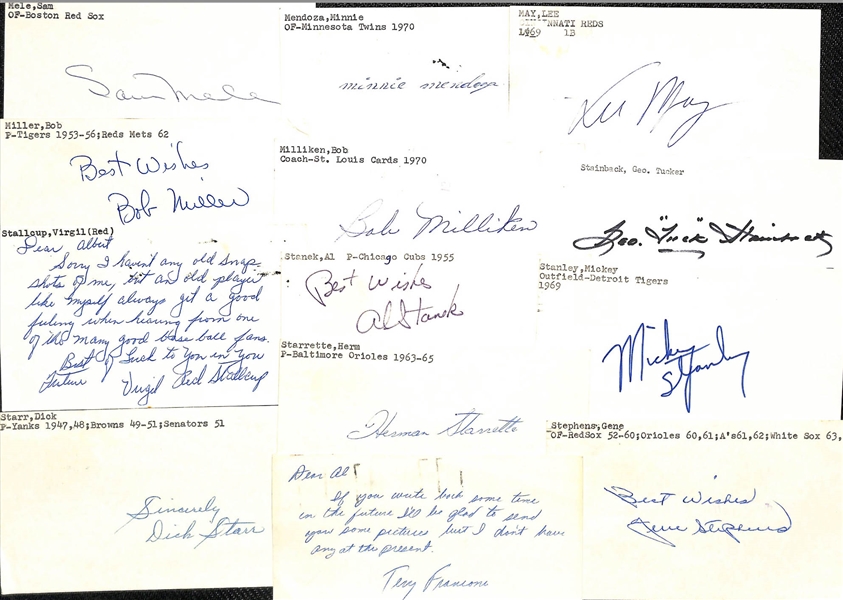 Mele, Sam
OF-Boston Red Sox
Sam Mele
Miller, Bob
P-Tigers 1953-56;Reds Mets 62
Best Wishes
Bob Miller
Stallcup, Virgil(Red)
Dear Albert
Sorry I haven't any old snap
shots of me, but an old player
like myself always get a good
feeling when hearing from one
of the many good base ball fans.
Best of Luck to You in You
Future
Virgil Red Stallcup
Starr, Dick
P-Yanks 1947,48;Browns 49-51;Senators 51
Sincerely
Dick Starr
Mendoza, Minnie
OF-Minnesota Twins 1970
minnie mendoza
Milliken, Bob
Coach-St. Louis Cards 1970
Bob Milliken
Stanek, Al P-Chicago Cubs 1955
Best Wishes
Al Stanek
Starrette, Herm
P-Baltimore Orioles 1963-65
Herman Starrette
Dear Al
If you write back some time
in the future I'll be glad to send
you some pictures but I don't have
any at the present.
Terry Francone
MAY, LEE
NNATI REDS
1969 1B
Lee May
Stainback, Geo. Tucker
Geo. "Tuck" Stainback
Stanley, Mickey
Outfield-Detroit Tigers
1969
Mickey Stanley
Stephens, Gene
OF-RedSox 52-60;Orioles 60,61;A's61,62;White Sox 63,
Best Wishes
Gene Stephens